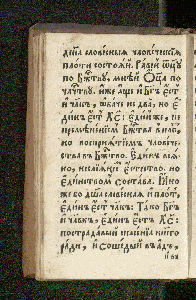 дш҃а словесныѧ человѣческїѧ
плоти состоѧй. Равен ѡц҃у
по Бж҃тву, мнѣй Оц҃а по
чл҃чтву. иже аще и Бг҃ъ єст
и чл҃къ, ѡбаче не два, но є
динъ єст Хс҃. Єдин же, не
премѣненїем Бж҃тва в пло
но воспрїѧтїемъ человече
ства въ Бж҃тво. Єдинъ всѧ
ко, не слїѧнїе єстества. но
Єдинством состава. Ꙗко
же бо дш҃а словеснаѧ и плоть
єдинъ єст чл҃къ: Тако бг҃ъ
и чл҃къ, єдинъ єст Хс҃.
пострадавый спасенїѧ нашего
ради, и сошедый въ адъ,